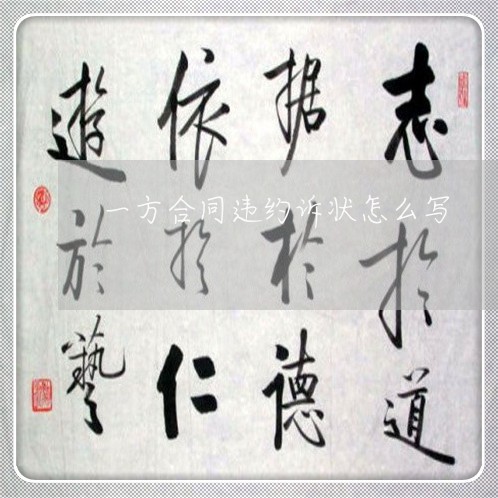 志於道
据於德
依於仁
遊於藝
一方合同违约诉状怎么写